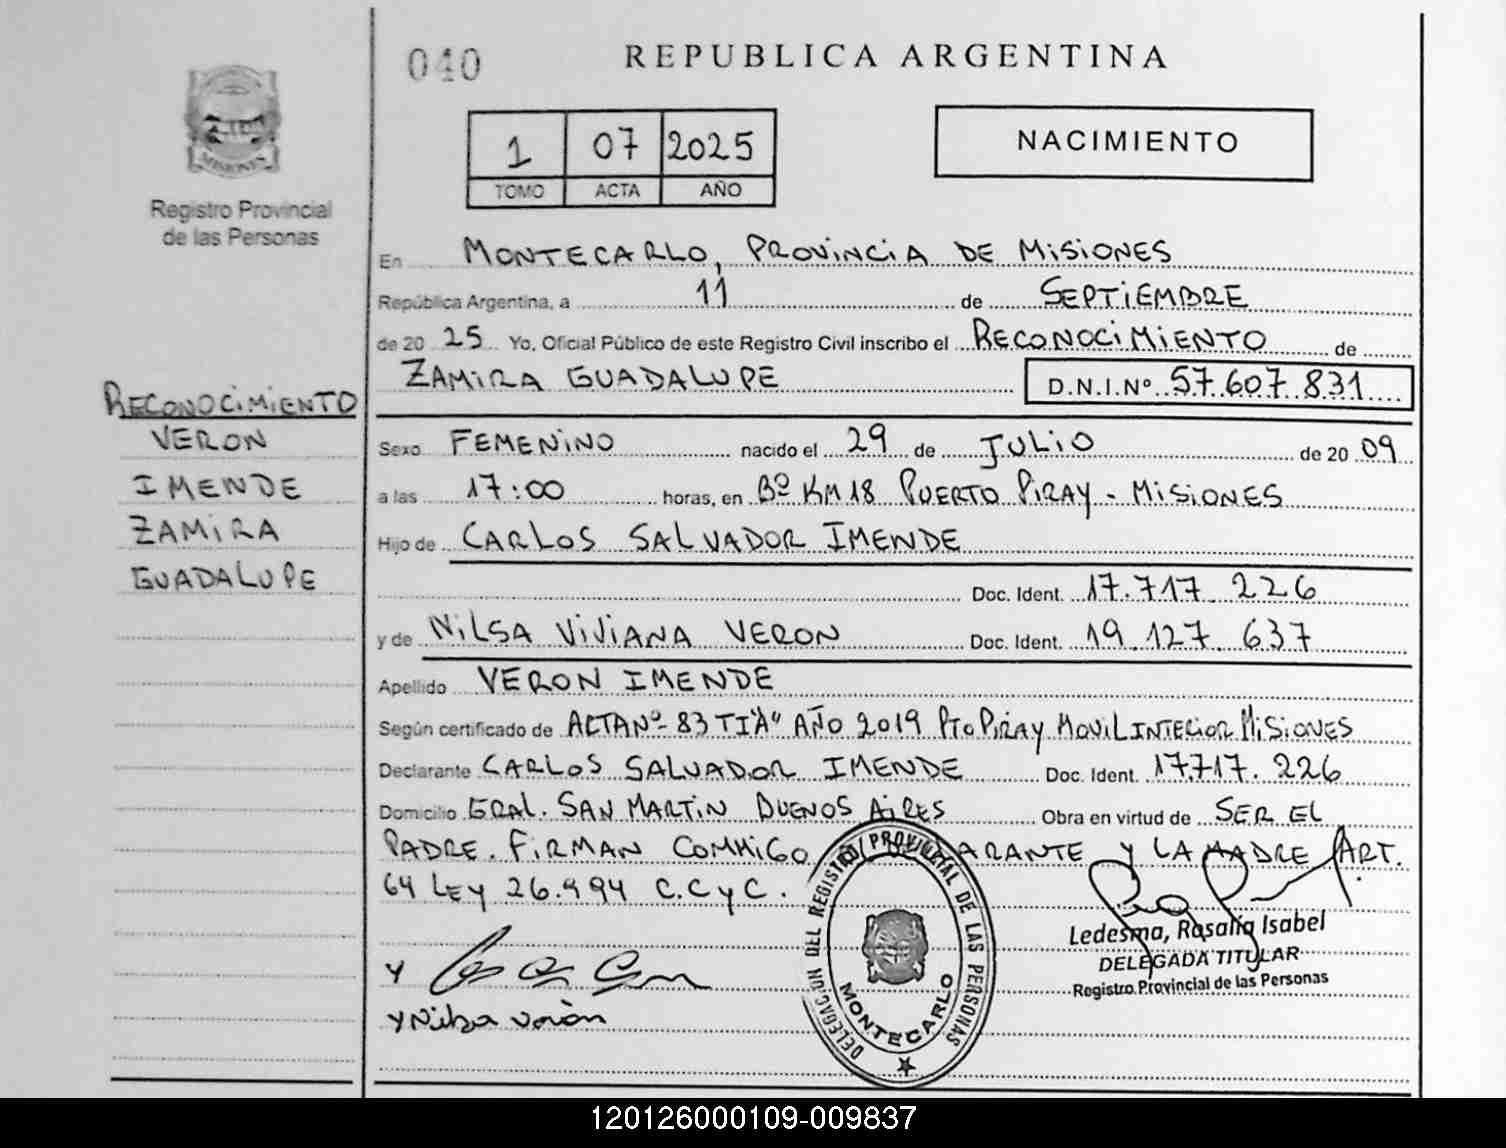 040
REPUBLICA ARGENTINA
1 07 2025
TOMO ACTA AÑO
NACIMIENTO
MISIONES
Registro Provincial
de las Personas
En MONTECARLO, PROVINCIA DE MISIONES
República Argentina, a 11 de SEPTIEMBRE
de 20 25 Yo, Oficial Público de este Registro Civil inscribo el RECONOCIMIENTO de
ZAMIRA GUADALUPE D.N.I.Nº 57.607.831
RECONOCIMIENTO
VERON
IMENDE
ZAMIRA
GUADALUPE
Sexo FEMENINO nacido el 29 de JULIO de 20 09
a las 17:00 horas, en Bº KM 18 PUERTO PIRAY - MISIONES
Hijo de CARLOS SALVADOR IMENDE
Doc. Ident. 17.717.226
y de NILSA VIVIANA VERON Doc. Ident. 19.127.637
Apellido VERON IMENDE
Según certificado de ACTA Nº- 83 TI"A" AÑO 2019 Pto PIRAY MOVIL INTERIOR MISIONES
Declarante CARLOS SALVADOR IMENDE Doc. Ident. 17.717.226
Domicilio GRAL. SAN MARTIN BUENOS AIRES Obra en virtud de SER EL
PADRE. FIRMAN CONMIGO ARANTE Y LA MADRE ART.
64 LEY 26.994 C.C y C.
Y
Y Nilsa Verón
DELEGACION DEL REGISTRO PROVINCIAL DE LAS PERSONAS
MONTECARLO
Ledesma, Rosalia Isabel
DELEGADA TITULAR
Registro Provincial de las Personas
120126000109-009837